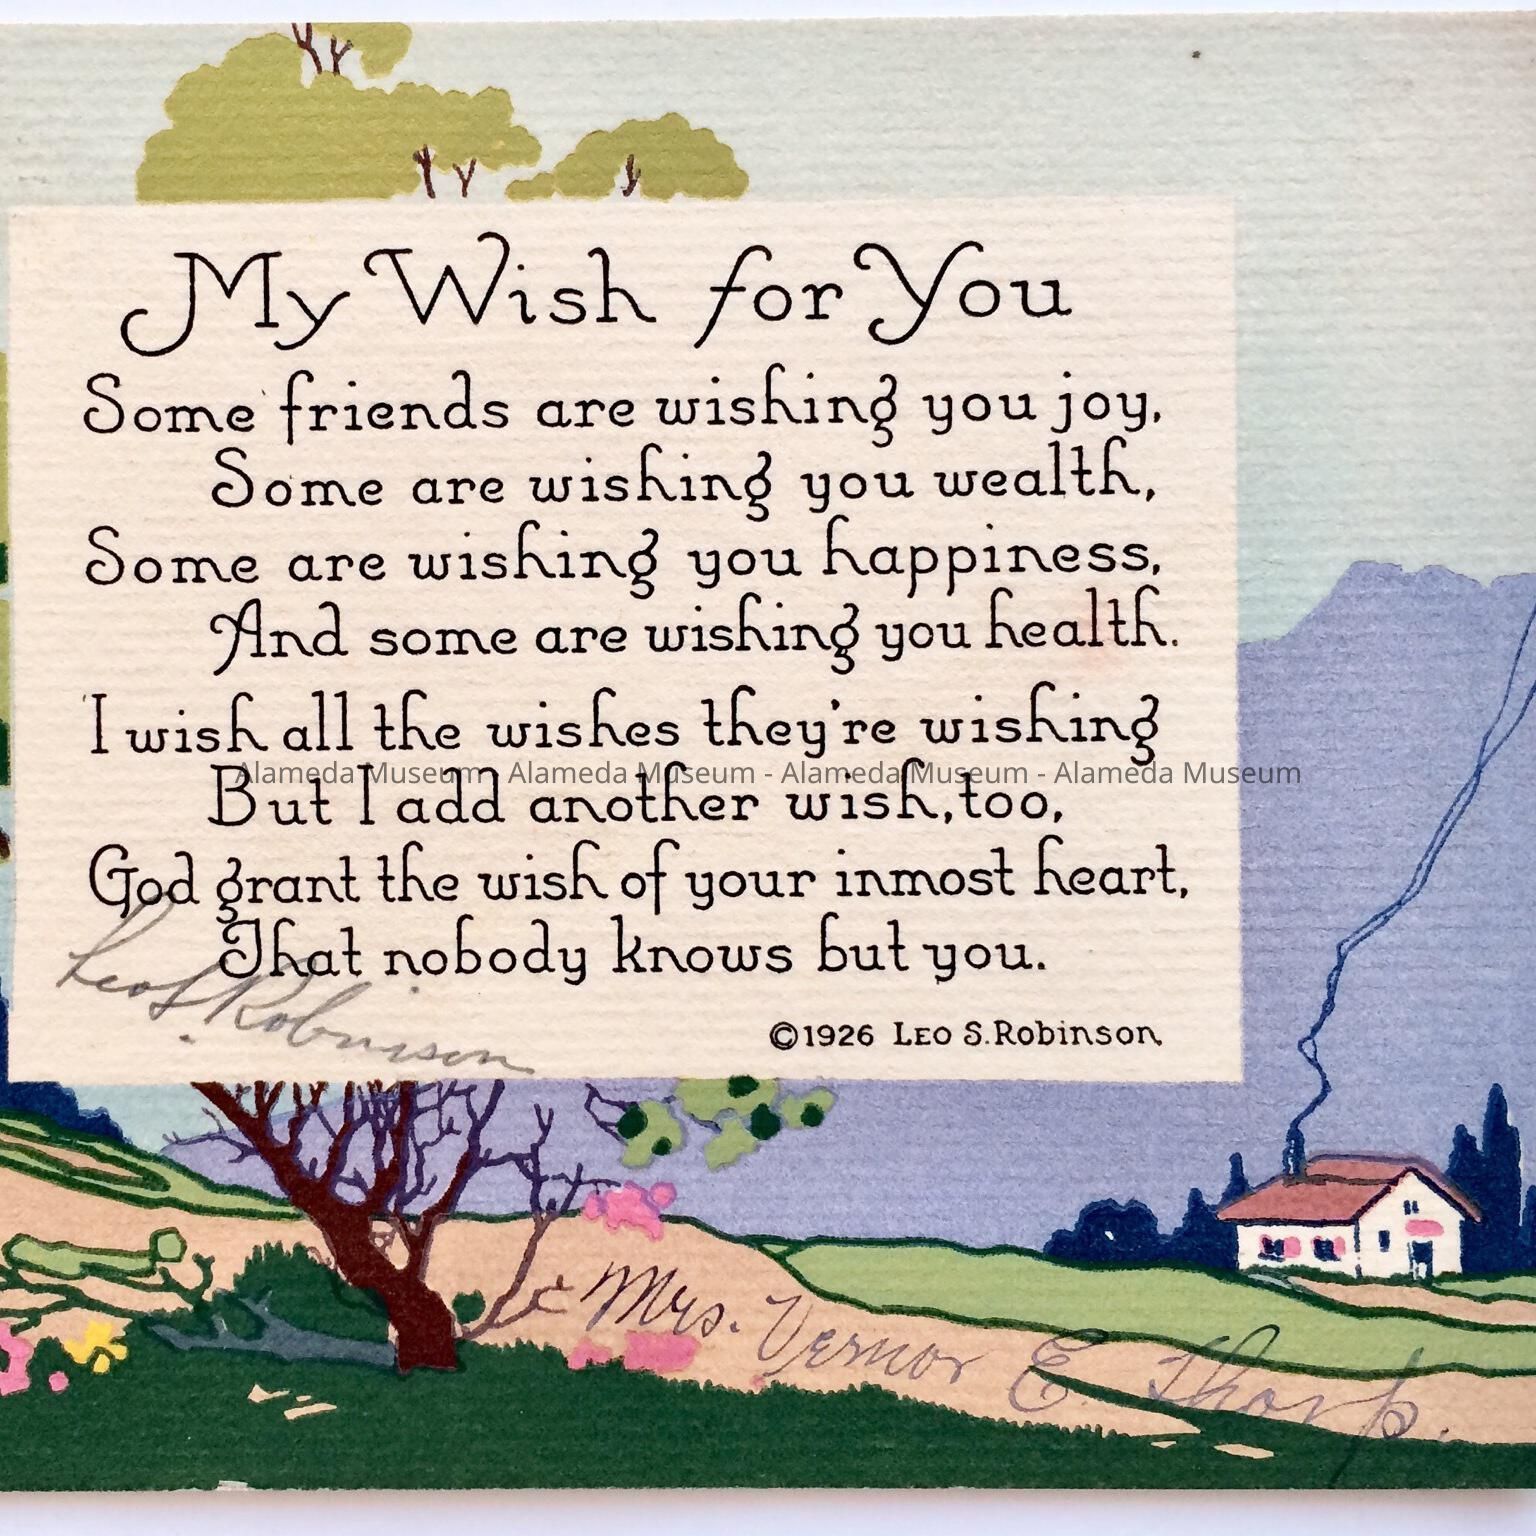 My Wish for You
Some friends are wishing you joy,
Some are wishing you wealth,
Some are wishing you happiness,
And some are wishing you health.
I wish all the wishes they're wishing
Alameda Museum - Alameda Museum - Alameda Museum - Alameda Museum
But I add another wish, too,
God grant the wish of your inmost heart,
That nobody knows but you.
Leo S. Robinson
©1926 Leo S. Robinson
Mrs. Vernor E Thorp.